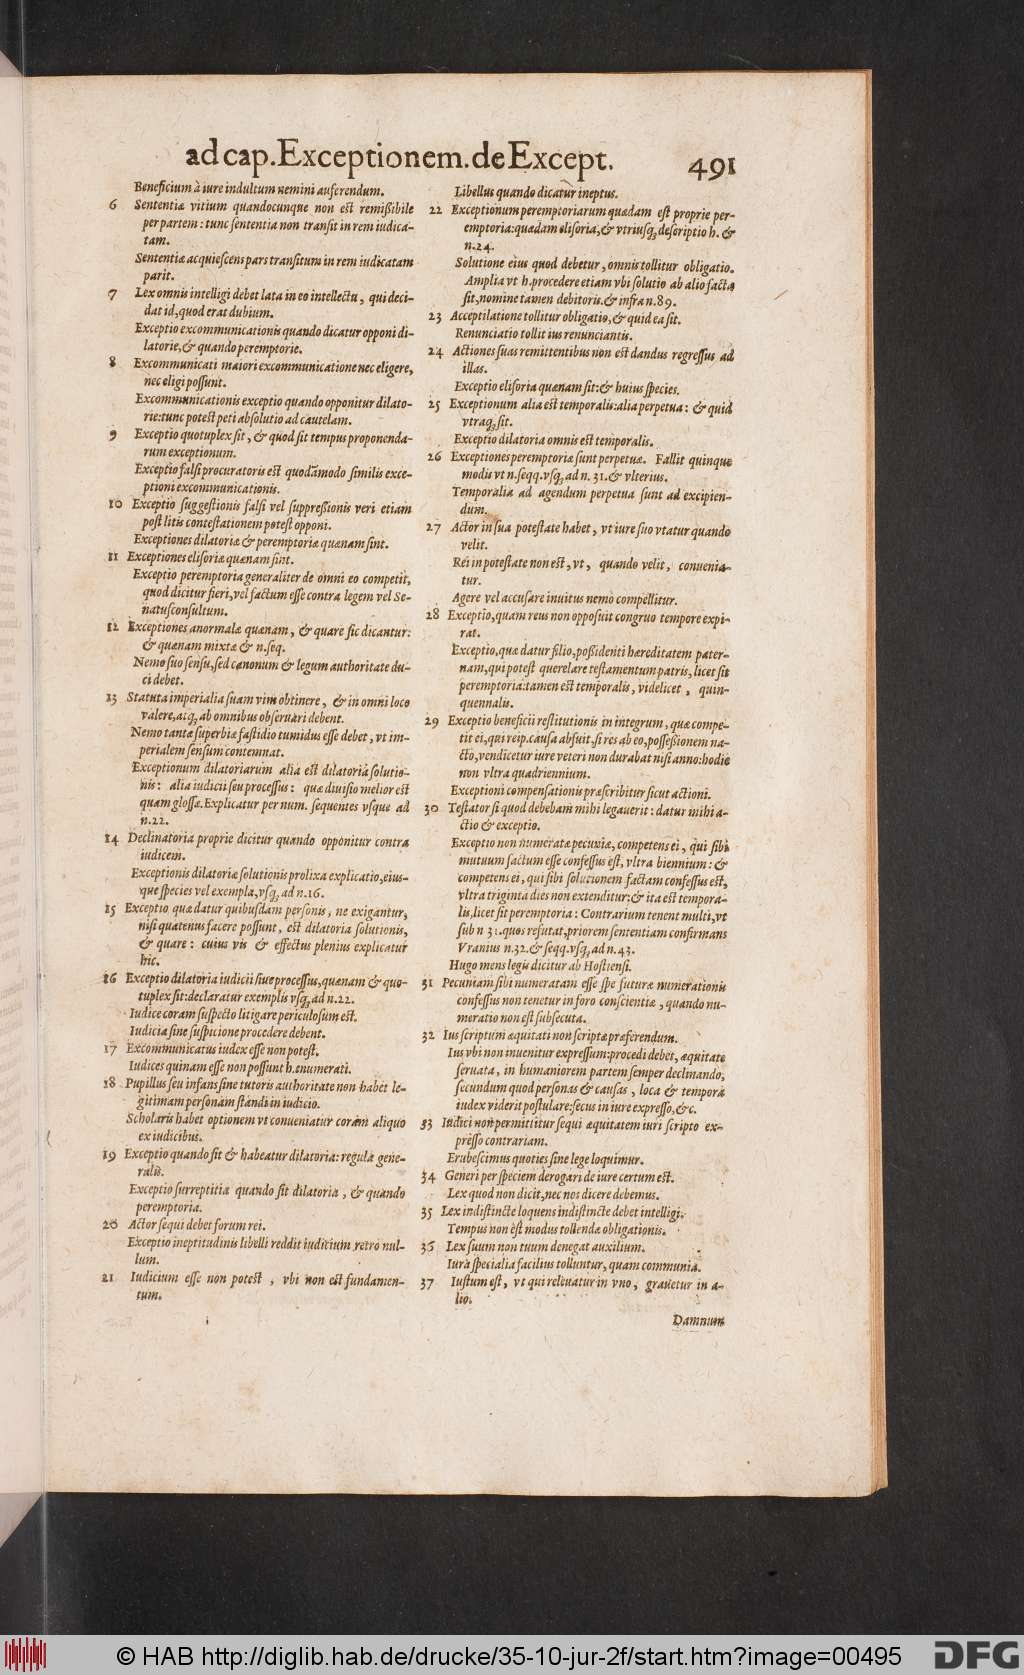 ad cap. Exceptionem. de Except. 491
Beneficium à iure indultum nemini auferendum.
6 Sententiæ vitium quandocunque non est remißibile
per partem: tunc sententia non transit in rem iudica-
tam.
Sententiæ acquiescens pars transitum in rem iudicatam
parit.
7 Lex omnis intelligi debet lata in eo intellectu, qui deci-
dat id, quod erat dubium.
Exceptio excommunicationis quando dicatur opponi di-
latorie, & quando peremptorie.
8 Excommunicati maiori excommunicatione nec eligere,
nec eligi possunt.
Excommunicationis exceptio quando opponitur dilato-
rie: tunc potest peti absolutio ad cautelam.
9 Exceptio quotuplex sit, & quod sit tempus proponenda-
rum exceptionum.
Exceptio falsi procuratoris est quodāmodo similis exce-
ptioni excommunicationis.
10 Exceptio suggestionis falsi vel suppreßionis veri etiam
post litis contestationem potest opponi.
Exceptiones dilatoriæ & peremptoriæ quænam sint.
11 Exceptiones elisoriæ quænam sint.
Exceptio peremptoria generaliter de omni eo competit,
quod dicitur fieri, vel factum esse contra legem vel Se-
natusconsultum.
12 Exceptiones anormalæ quænam, & quare sic dicantur:
& quænam mixtæ & n. seq.
Nemo suo sensu, sed canonum & legum authoritate du-
ci debet.
13 Statuta imperialia suam vim obtinere, & in omni loco
valere, atq́; ab omnibus observari debent.
Nemo tantæ superbiæ fastidio tumidus esse debet, vt im-
perialem sensum contemnat.
Exceptionum dilatoriarum alia est dilatoria solutio-
nis: alia iudicii seu processus: quæ divisio melior est
quam glossæ. Explicatur per num. sequentes vsque ad
n. 22.
14 Declinatoria proprie dicitur quando opponitur contra
iudicem.
Exceptionis dilatoriæ solutionis prolixa explicatio, eius-
que species vel exempla, vsq́; ad n. 16.
15 Exceptio quæ datur quibusdam personis, ne exigantur,
nisi quatenus facere possunt, est dilatoria solutionis,
& quare: cuius vis & effectus plenius explicatur
hic.
16 Exceptio dilatoria iudicii siue processus, quænam & quo-
tuplex sit: declaratur exemplis vsq́; ad n. 22.
Iudice coram suspecto litigare periculosum est.
Iudicia sine suspicione procedere debent.
17 Excommunicatus iudex esse non potest.
Iudices quinam esse non possunt h. enumerati.
18 Pupillus seu infans sine tutoris authoritate non habet le-
gitimam personam standi in iudicio.
Scholaris habet optionem vt conueniatur coram aliquo
ex iudicibus.
19 Exceptio quando sit & habeatur dilatoria: regula gene-
ralis.
Exceptio surreptitia quando sit dilatoria, & quando
peremptoria.
20 Actor sequi debet forum rei.
Exceptio ineptitudinis libelli reddit iudicium retro nul-
lum.
21 Iudicium esse non potest, vbi non est fundamen-
tum.
Libellus quando dicatur ineptus.
22 Exceptionum peremptoriarum quædam est proprie per-
emptoria: quædam elisoria, & vtriusq́; descriptio h. &
n. 24.
Solutione eius quod debetur, omnis tollitur obligatio.
Amplia vt h. procedere etiam vbi solutio ab alio facta
sit, nomine tamen debitoris. & infra n. 89.
23 Acceptilatione tollitur obligatio, & quid ea sit.
Renunciatio tollit ius renunciantis.
24 Actiones suas remittentibus non est dandus regressus ad
illas.
Exceptio elisoria quænam sit: & huius species.
25 Exceptionum alia est temporalis: alia perpetua: & quid
vtraq́; sit.
Exceptio dilatoria omnis est temporalis.
26 Exceptiones peremptoriæ sunt perpetuæ. Fallit quinque
modis vt n. seqq. vsq́; ad n. 31. & vlterius.
Temporalia ad agendum perpetua sunt ad excipien-
dum.
27 Actor in sua potestate habet, vt iure suo vtatur quando
velit.
Rei in potestate non est, vt, quando velit, convenia-
tur.
Agere vel accusare invitus nemo compellitur.
28 Exceptio, quam reus non opposuit congruo tempore expi-
rat.
Exceptio, quæ datur filio, poßidenti hæreditatem pater-
nam, qui potest querelare testamentum patris, licet sit
peremptoria: tamen est temporalis, videlicet, quin-
quennalis.
29 Exceptio beneficii restitutionis in integrum, quæ compe-
tit ei, qui reip. causa absuit, si res ab eo, posseßionem na-
cto, vendicetur iure veteri non durabat nisi anno: hodie
non vltra quadriennium.
Exceptioni compensationis præscribitur sicut actioni.
30 Testator si quod debebam mihi legaverit: datur mihi a-
ctio & exceptio.
Exceptio non numeratæ pecuniæ, competens ei, qui sibi
mutuum factum esse confessus est, vltra biennium: &
competens ei, qui sibi solutionem factam confessus est,
vltra triginta dies non extenditur: & ita est tempora-
lis, licet sit peremptoria: Contrarium tenent multi, vt
sub n 31. quos refutat, priorem sententiam confirmans
Vranius n. 32. & seqq. vsq́; ad n. 43.
Hugo mens legū dicitur ab Hostiensi.
31 Pecuniam sibi numeratam esse spe futuræ numerationis
confessus non tenetur in foro conscientiæ, quando nu-
meratio non est subsecuta.
32 Ius scriptum æquitati non scriptæ præferendum.
Ius vbi non invenitur expressum: procedi debet, æquitate
servata, in humaniorem partem semper declinando,
secundum quod personas & causas, loca & tempora
iudex viderit postulare: secus in iure expresso, &c.
33 Iudici non permittitur sequi æquitatem iuri scripto ex-
presso contrariam.
Erubescimus quoties sine lege loquimur.
34 Generi per speciem derogari de iure certum est.
Lex quod non dicit, nec nos dicere debemus.
35 Lex indistincte loquens indistincte debet intelligi.
Tempus non est modus tollendæ obligationis.
36 Lex suum non tuum denegat auxilium.
Iura specialia facilius tolluntur, quam communia.
37 Iustum est, vt qui relevatur in vno, gravetur in a-
lio.
Damnum
© HAB http://diglib.hab.de/drucke/35-10-jur-2f/start.htm?image=00495
DFG